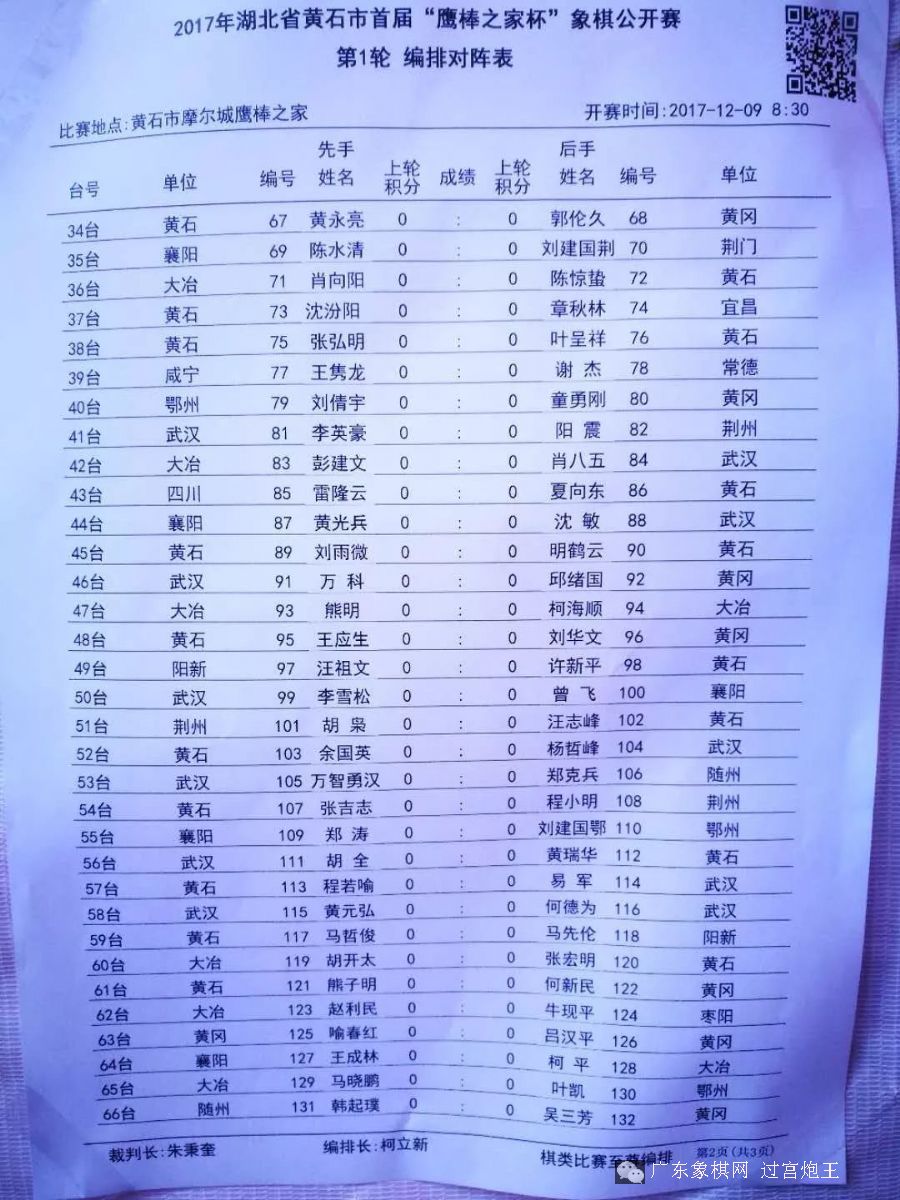 2017年湖北省黄石市首届“鹰棒之家杯”象棋公开赛
第1轮 编排对阵表
比赛地点:黄石市摩尔城鹰棒之家 开赛时间:2017-12-09 8:30
先手 后手
台号 单位 编号 姓名 上轮积分 成绩 上轮积分 姓名 编号 单位
34台 黄石 67 黄永亮 0 : 0 郭伦久 68 黄冈
35台 襄阳 69 陈水清 0 : 0 刘建国荆 70 荆门
36台 大冶 71 肖向阳 0 : 0 陈惊蛰 72 黄石
37台 黄石 73 沈汾阳 0 : 0 章秋林 74 宜昌
38台 黄石 75 张弘明 0 : 0 叶呈祥 76 黄石
39台 咸宁 77 王隽龙 0 : 0 谢 杰 78 常德
40台 鄂州 79 刘倩宇 0 : 0 童勇刚 80 黄冈
41台 武汉 81 李英豪 0 : 0 阳 震 82 荆州
42台 大冶 83 彭建文 0 : 0 肖八五 84 武汉
43台 四川 85 雷隆云 0 : 0 夏向东 86 黄石
44台 襄阳 87 黄光兵 0 : 0 沈 敏 88 武汉
45台 黄石 89 刘雨微 0 : 0 明鹤云 90 黄石
46台 武汉 91 万 科 0 : 0 邱绪国 92 黄冈
47台 大冶 93 熊明 0 : 0 柯海顺 94 大冶
48台 黄石 95 王应生 0 : 0 刘华文 96 黄冈
49台 阳新 97 汪祖文 0 : 0 许新平 98 黄石
50台 武汉 99 李雪松 0 : 0 曾 飞 100 襄阳
51台 荆州 101 胡 枭 0 : 0 汪志峰 102 黄石
52台 黄石 103 余国英 0 : 0 杨哲峰 104 武汉
53台 武汉 105 万智勇汉 0 : 0 郑克兵 106 随州
54台 黄石 107 张吉志 0 : 0 程小明 108 荆州
55台 襄阳 109 郑 涛 0 : 0 刘建国鄂 110 鄂州
56台 武汉 111 胡 全 0 : 0 黄瑞华 112 黄石
57台 黄石 113 程若喻 0 : 0 易 军 114 武汉
58台 武汉 115 黄元弘 0 : 0 何德为 116 武汉
59台 黄石 117 马哲俊 0 : 0 马先伦 118 阳新
60台 大冶 119 胡开太 0 : 0 张宏明 120 黄石
61台 黄石 121 熊子明 0 : 0 何新民 122 黄冈
62台 大冶 123 赵利民 0 : 0 牛现平 124 枣阳
63台 黄冈 125 喻春红 0 : 0 吕汉平 126 黄冈
64台 襄阳 127 王成林 0 : 0 柯 平 128 大冶
65台 大冶 129 马晓鹏 0 : 0 叶凯 130 鄂州
66台 随州 131 韩起璞 0 : 0 吴三芳 132 黄冈
裁判长:朱秉奎 编排长:柯立新 棋类比赛至尊编排 第2页(共3页)
广东象棋网 过宫炮王